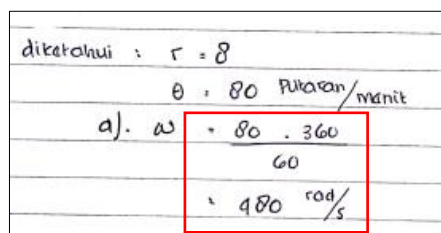 diketahui : r = 8
θ : 80 Putaran/menit
a). ω = 80 . 360
60
: 480 rad/s